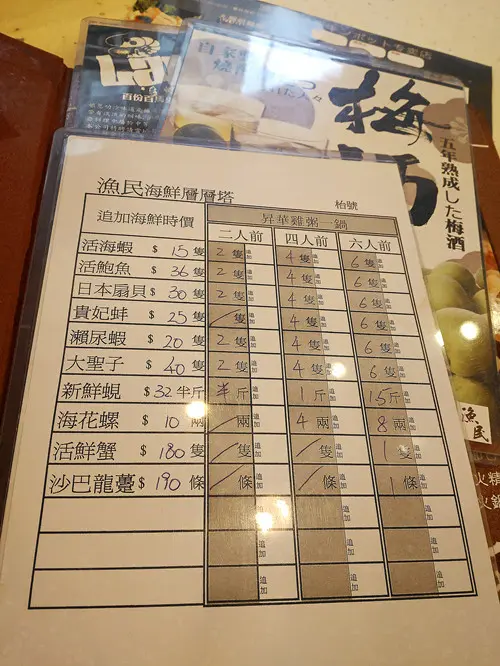 キンポット专卖店
自家
百份百
梅酒
五年熟成した梅酒
漁民
火鍋
漁民海鮮層層塔
枱號
追加海鮮時價 昇華雞粥一鍋
二人前 四人前 六人前
活海蝦 $ 15 隻 2 隻 追加 4 隻 追加 6 隻 追加
活鮑魚 $ 36 隻 2 隻 追加 4 隻 追加 6 隻 追加
日本扇貝 $ 30 隻 2 隻 追加 4 隻 追加 6 隻 追加
貴妃蚌 $ 25 隻 / 隻 追加 4 隻 追加 6 隻 追加
瀨尿蝦 $ 20 隻 2 隻 追加 4 隻 追加 6 隻 追加
大聖子 $ 40 隻 2 隻 追加 4 隻 追加 6 隻 追加
新鮮蜆 $ 32 半斤 半斤 追加 1 斤 追加 1.5 斤 追加
海花螺 $ 10 兩 / 兩 追加 4 兩 追加 8 兩 追加
活鮮蟹 $ 180 隻 / 隻 追加 / 隻 追加 1 隻 追加
沙巴龍躉 $ 190 條 / 條 追加 / 條 追加 1 條 追加
追加 追加 追加
追加 追加 追加
追加 追加 追加